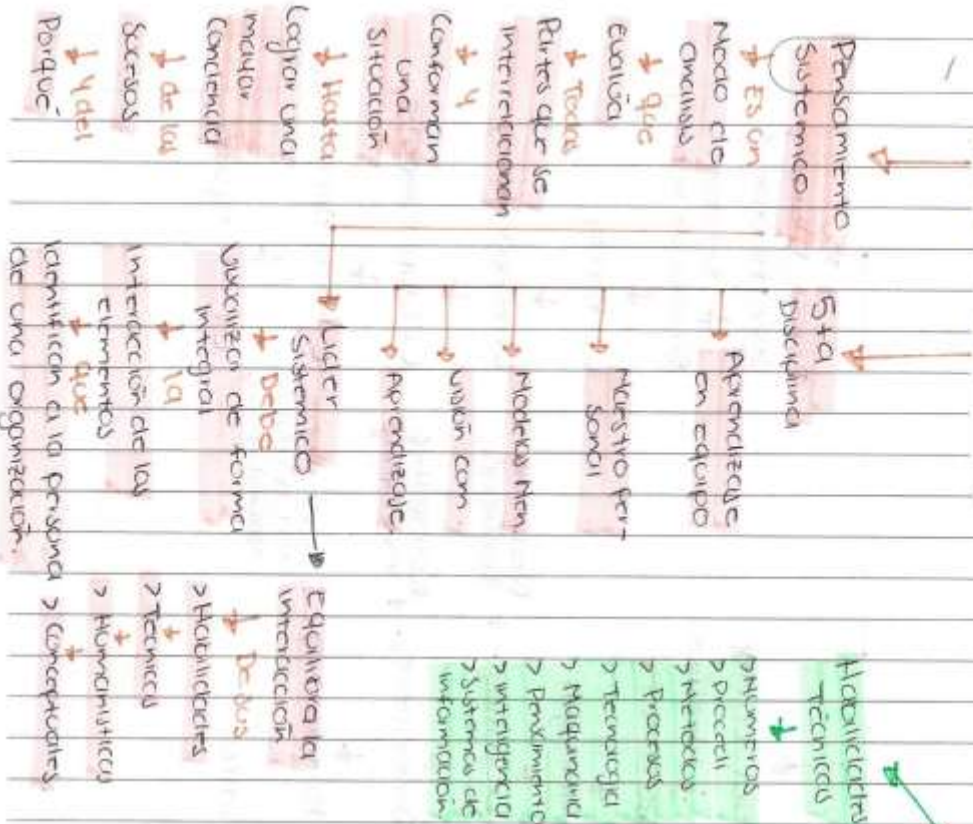 Pensamiento
Sistemico
Es un
Modo de
analisis
que
evalúa
Todas
Partes que se
interrelacionan
y
Conforman
una
Situación
Hasta
Lograr una
mayor
Conciencia
de los
Sucesos
y del
Porqué
5ta
Disciplina
Aprendizaje
en equipo
Maestro Per-
sonal
Modelos Men.
Visión com.
Aprendizaje.
Lider
Sistemico
Debe
de forma
Integral
la
Interacción de los
elementos
que
identifican a la persona
de una organización.
Equilibra la
interacción
De sus
> Habilidades
> Técnicas
> Humanisticas
> Conceptuales.
Habilidades
Técnicas
> Números
> Procedi
> Metodos.
> Procesos
> Tecnología
> Maquinaria
> Pensamiento
> Inteligencia
> Sistemas de
información.